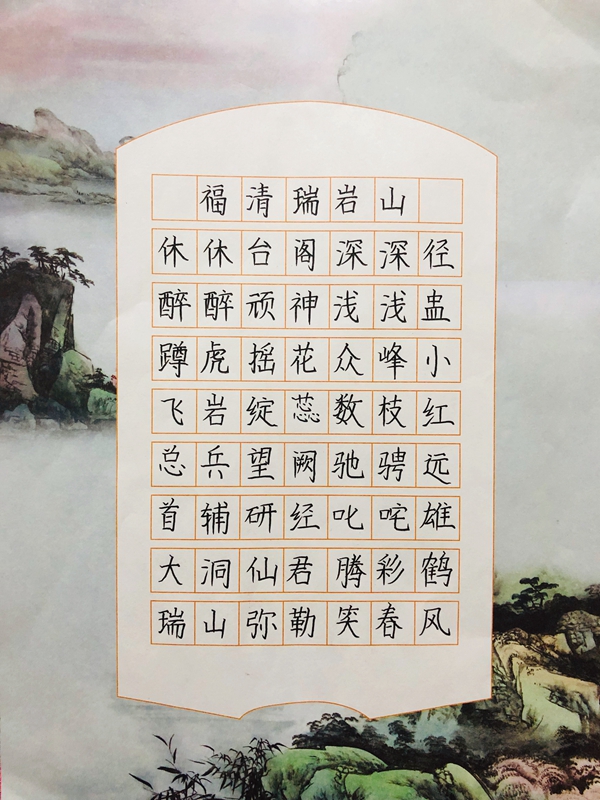 福清瑞岩山
休休台阁深深径
醉醉顽神浅浅盅
蹲虎摇花众峰小
飞岩绽蕊数枝红
总兵望阙驰骋远
首辅研经叱咤雄
大洞仙君腾彩鹤
瑞山弥勒笑春风